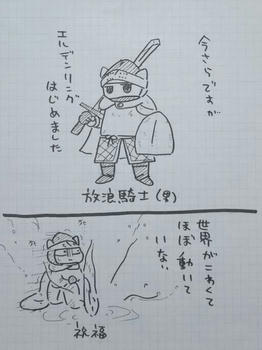 今さらですが
エルデンリング
はじめました
放浪騎士(男)
世界がこわくて
ほぼ動いて
いない
祝福